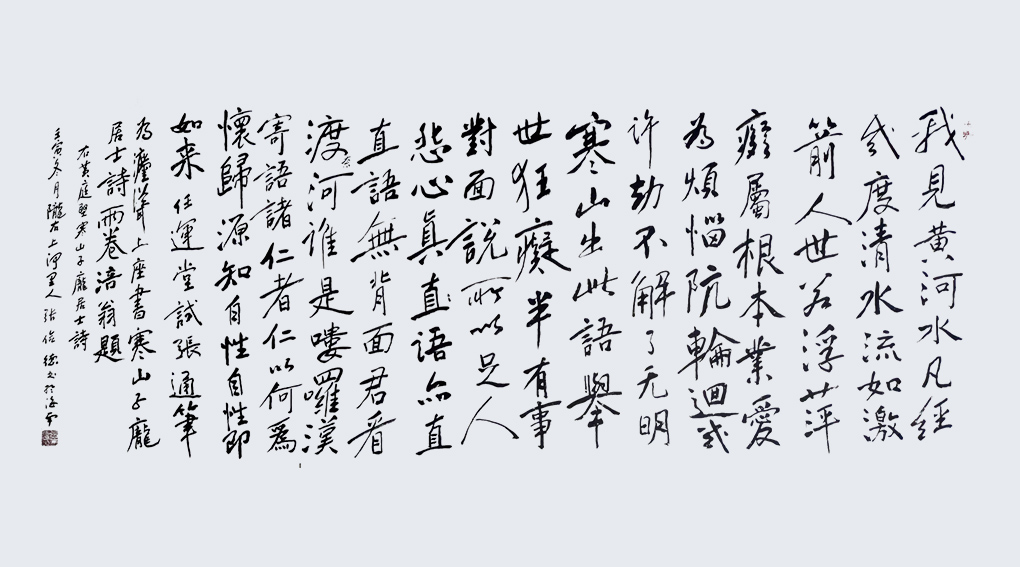 我見黄河水凡經
幾度清水流如激
箭人世若浮萍
癡屬根本業愛
為煩惱阬輪迴幾
許劫不解了无明
寒山出此語舉
世狂癡半有事
對面說所以足人
怨心真直語亦直
直語無背面君看
渡奈河誰是嘍囉漢
寄語諸仁者仁以何爲
懷歸源知自性自性即
如来任運堂試張通筆
為上座書寒山子龐
居士詩兩卷涪翁題
右黄庭堅寒山子龐居士詩
壬寅冬月隴右上里人張